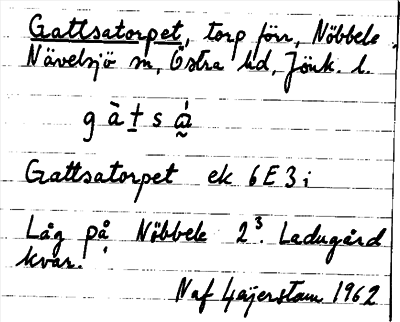 Gattsatorpet, torp förr, Nöbbele,
Nävelsjö sn, Östra hd, Jönk. l.
g à t s a̰
Gattsatorpet ek 6E3i
Låg på Nöbbele 2³. Ladugård
kvar.
Naf Lajerstam 1962